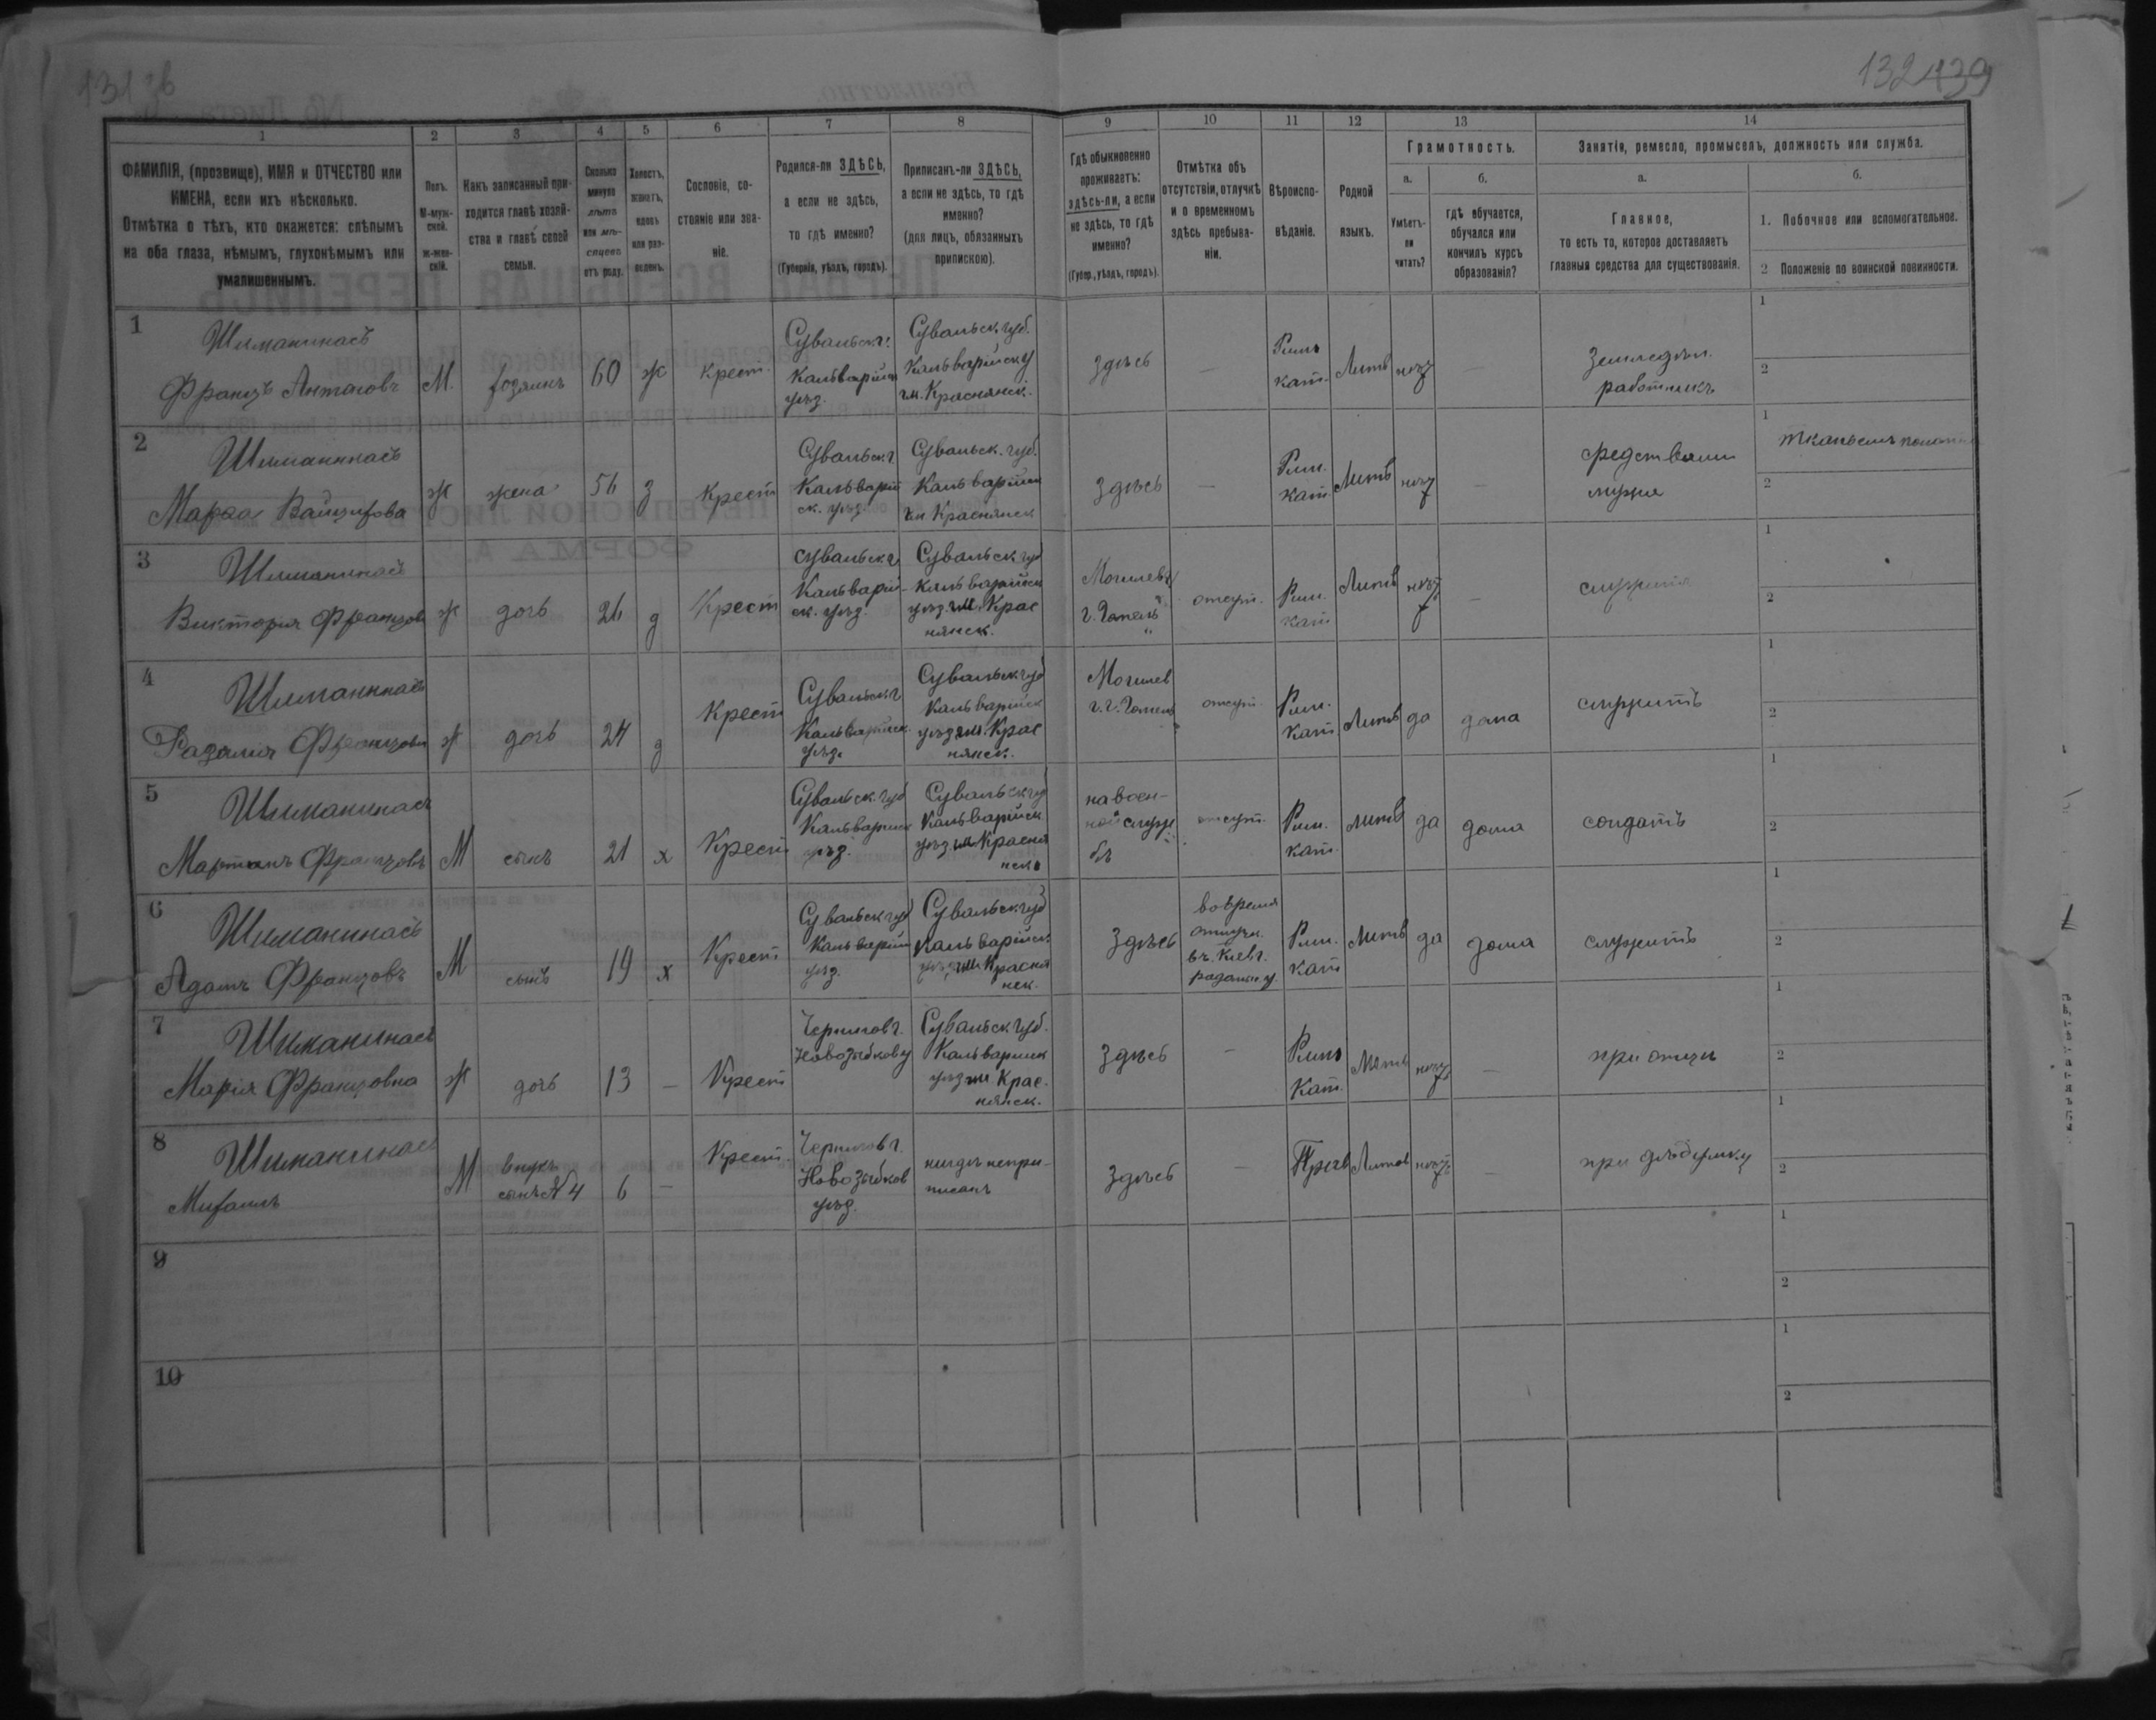 132 439
1
2
3
4
5
6
7
8
9
10
11
12
13
14
ФАМИЛІЯ, (прозвище), ИМЯ и ОТЧЕСТВО или
ИМЕНА, если ихъ нѣсколько.
Отмѣтка о тѣхъ, кто окажется: слѣпымъ
на оба глаза, нѣмымъ, глухонѣмымъ или
умалишеннымъ.
Полъ.
М-муж-
ской.
Ж-жен-
скій.
Какъ записанный при-
ходится главѣ хозяй-
ства и главѣ своей
семьи.
Сколько
минуло
лѣтъ
или мѣ-
сяцевъ
отъ роду.
Холостъ,
женатъ,
вдовъ
или раз-
веденъ.
Сословіе, со-
стояніе или зва-
ніе.
Родился-ли ЗДѢСЬ,
а если не здѣсь,
то гдѣ именно?
(Губернія, уѣздъ, городъ).
Приписанъ-ли ЗДѢСЬ,
а если не здѣсь, то гдѣ
именно?
(для лицъ, обязанныхъ
припискою).
Гдѣ обыкновенно
проживаетъ:
здѣсь-ли, а если
не здѣсь, то гдѣ
именно?
(Губер., уѣздъ, городъ).
Отмѣтка объ
отсутствіи, отлучкѣ
и о временномъ
здѣсь пребыва-
ніи.
Вѣроиспо-
вѣданіе.
Родной
языкъ.
Грамотность.
а.
Умѣетъ-
ли
читать?
б.
гдѣ обучается,
обучался или
кончилъ курсъ
образованія?
Занятія, ремесло, промыселъ, должность или служба.
а.
Главное,
то есть то, которое доставляетъ
главныя средства для существованія.
б.
1. Побочное или вспомогательное.
2 Положеніе по воинской повинности.
1
Шиманинасъ
Францъ Антоновъ
М.
хозяинъ
60
ж
крест.
Сувальск г.
Кальварійск
уѣзд.
Сувальск. губ.
Кальварійск у
гм. Краснянск.
здѣсь
—
Римъ
кат.
Литв
нѣт
—
Земледѣл.
работникъ
1
2
2
Шиманинасъ
Марѳа
ж
жена
56
з
Крест
Сувальск г
Кальварій
ск. уѣзд.
Сувальск. губ.
Кальварійск
гм Краснянск
здѣсь
—
Рим.
кат
Литв
нѣт
—
средствами
мужа
1 тканьемъ полотна
2
3
Шиманинасъ
Викторія Францов
ж
дочь
26
д
Крест
Сувальск г
Кальварій-
ск. уѣзд.
Сувальск губ
Кальварійск
уѣзд. гм. Крас
нянск.
Могилев г
г. Гомель
отсут.
Рим.
кат
Литв
нѣт
—
служитъ
1
2
4
Шиманинасъ
Розалия Францовн
ж
дочь
24
д
Крест
Сувальск г
Кальварійск.
уѣзд.
Сувальск губ
Кальварійск
уѣзд гм. Крас
нянск.
Могилев
г. г. Гомель
отсут.
Рим.
кат
Литв
да
дома
служитъ
1
2
5
Шиманинасъ
Мартинъ Францовъ
М
сынъ
21
х
Крест
Сувальск. губ
Кальварийск
уѣзд.
Сувальск губ
Кальварійск
уѣзд. гм Красня
нск.
на воен-
ной служ
бѣ
отсут.
Рим.
кат.
литв
да
дома
солдатъ
1
2
6
Шиманинасъ
Адамъ Францовъ
М
сынъ
19
х
Крест
Сувальск губ
Кальварій
уѣзд.
Сувальск губ
Кальварійск
уѣзд. гм Красня
нск.
здѣсь
Рим.
кат
Литв
да
дома
служитъ
1
2
7
Шиманинасъ
Марія Францовна
ж
дочь
13
—
Крест
Чернигов г.
Новозыбков у
Сувальск губ.
Кальварииск
уѣзд гм Крас.
нянск.
здѣсь
—
Римъ
Кат.
Литв
нѣтъ
—
при отцѣ
1
2
8
Шиманинасъ
М
внукъ
сынъ №4
6
—
Крест.
Чернигов г.
Новозыбков
уѣзд.
нигдѣ непри-
писанъ
здѣсь
—
Прав
Литов
нѣтъ
—
при дѣдушкѣ
1
2
9
1
2
10
1
2